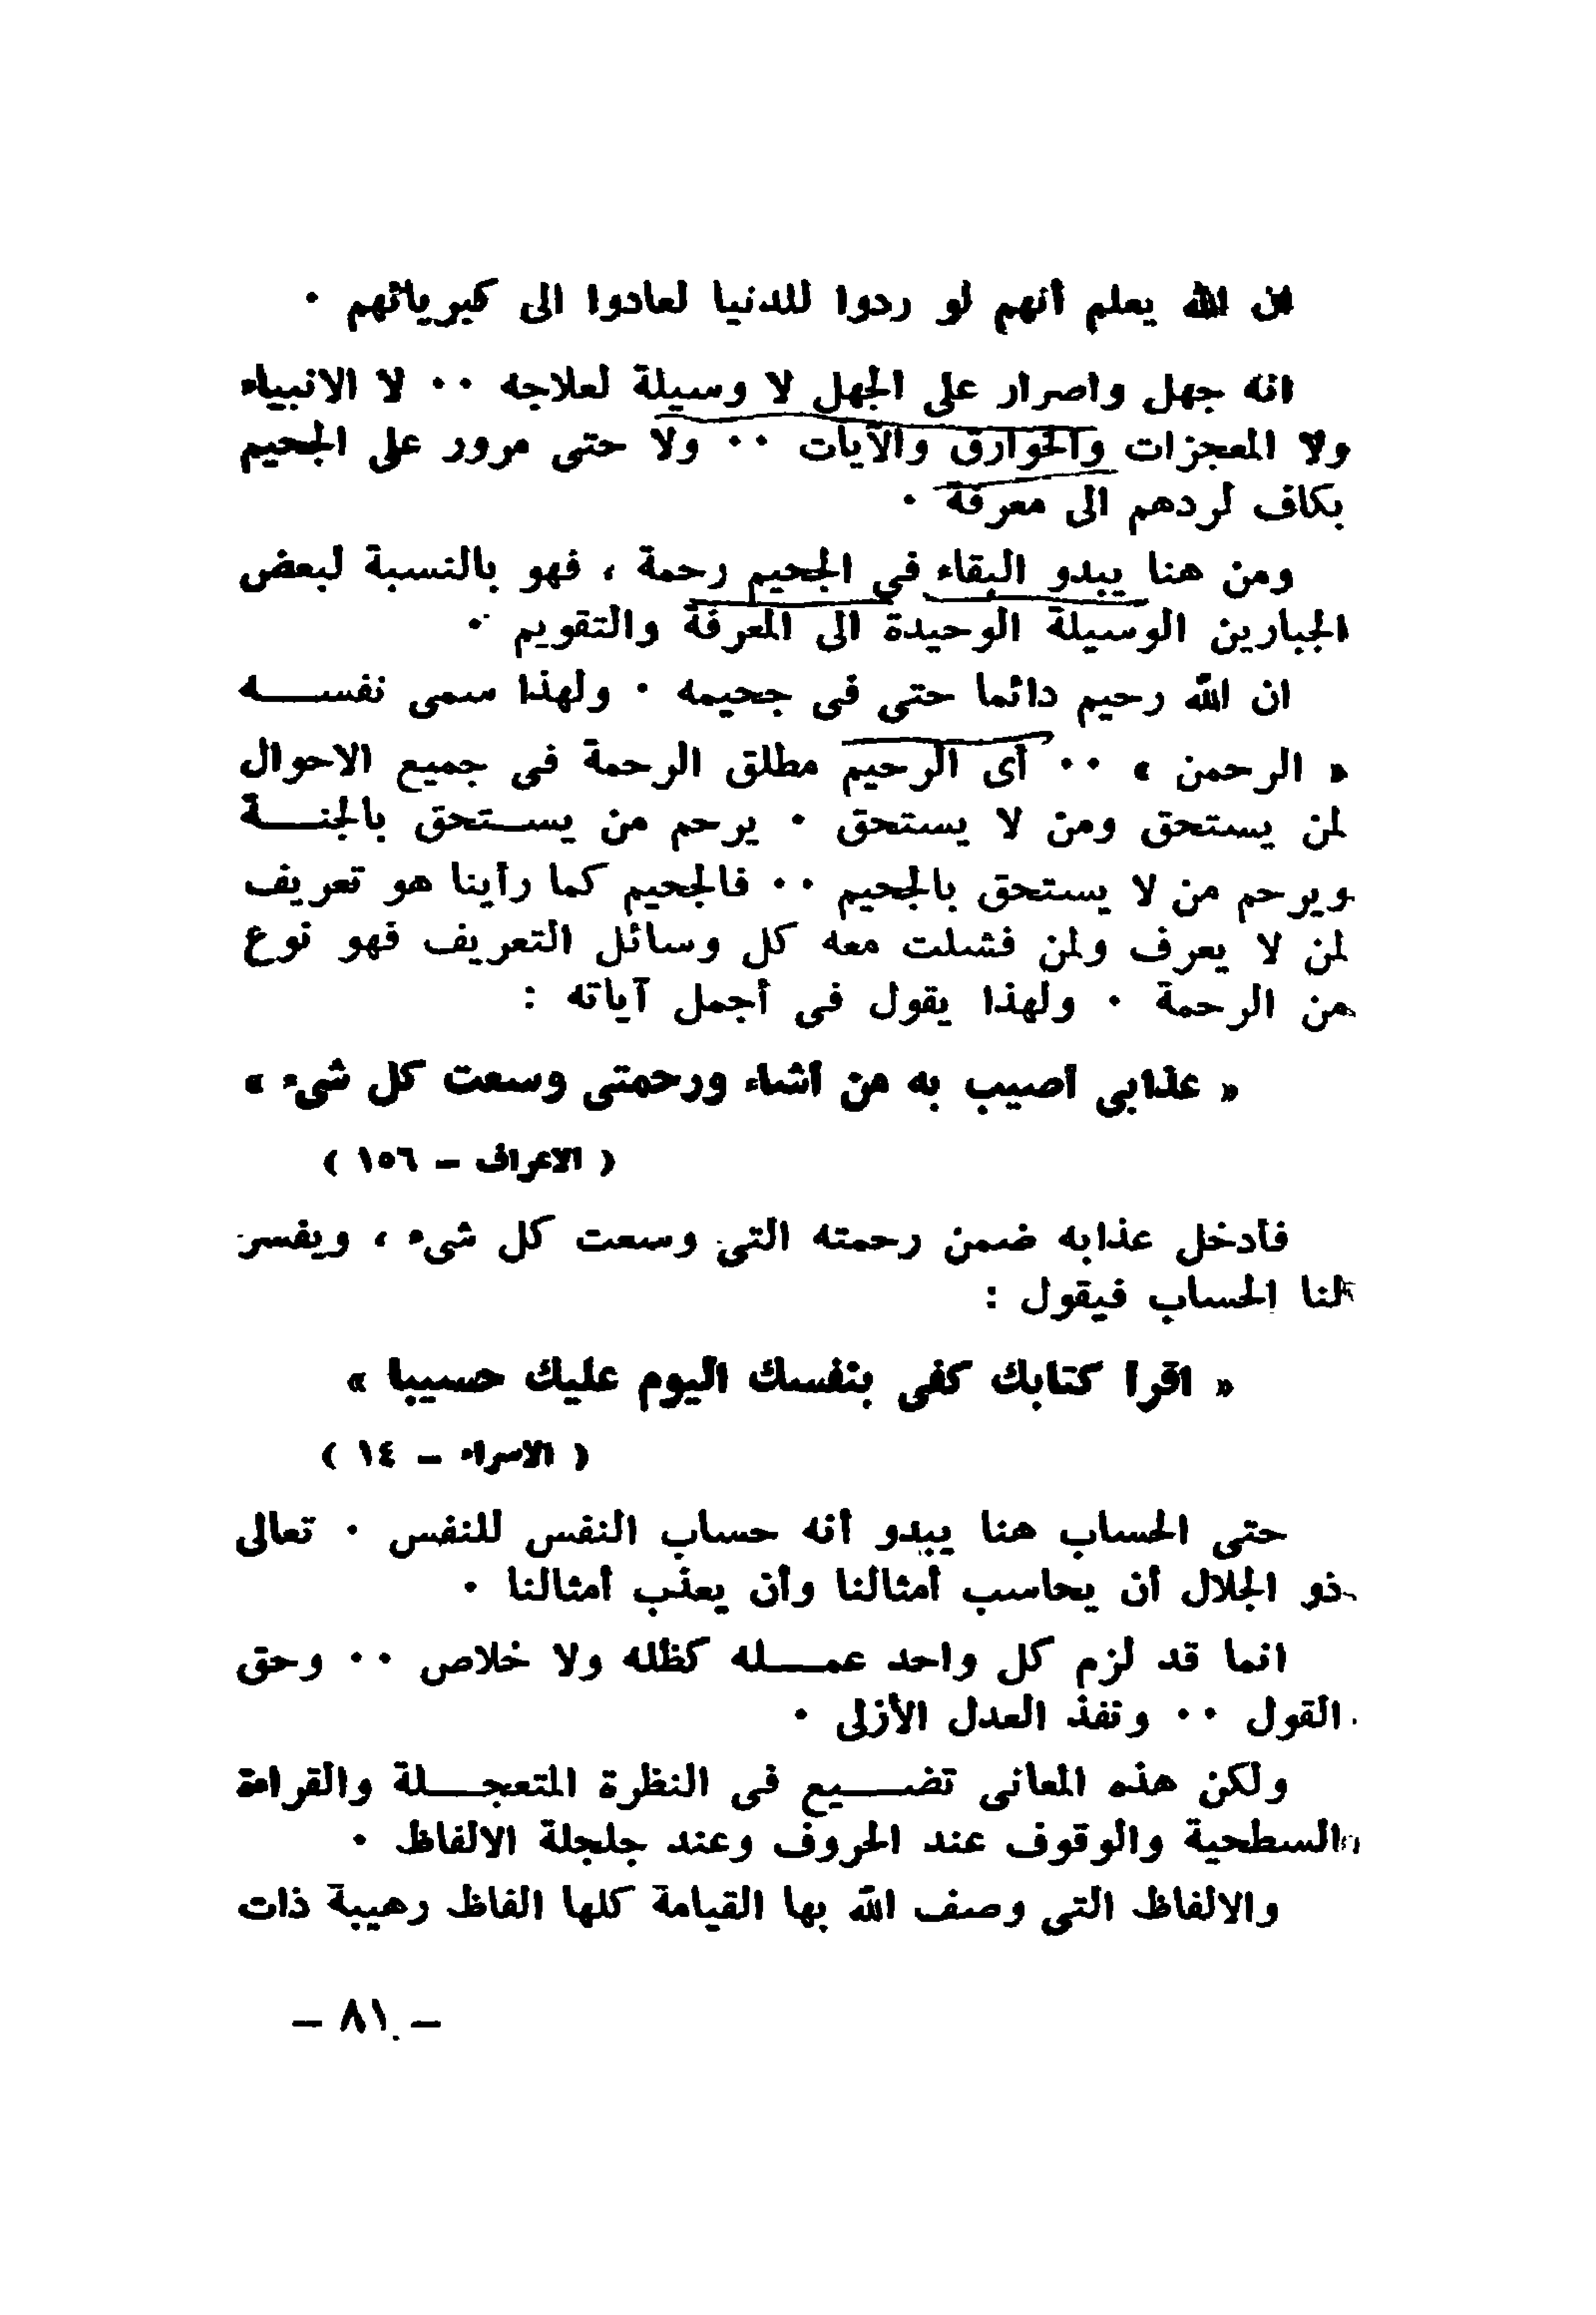 ان الله يعلم أنهم لو ردوا للدنيا لعادوا الى كبريائهم ٠
انه جهل واصرار على الجهل لا وسيلة لعلاجه ٠٠ لا الانبياء
ولا المعجزات والخوارق والآيات ٠٠ ولا حتى مرور على الجحيم
بكاف لردهم الى معرفة ٠
ومن هنا يبدو البقاء في الجحيم رحمة ، فهو بالنسبة لبعض
الجبارين الوسيلة الوحيدة الى المعرفة والتقويم ٠
ان الله رحيم دائما حتى فى جحيمه ٠ ولهذا سمى نفســـه
« الرحمن » ٠٠ أى الرحيم مطلق الرحمة فى جميع الاحوال
لمن يستحق ومن لا يستحق ٠ يرحم من يســتحق بالجنـــة
ويرحم من لا يستحق بالجحيم ٠٠ فالجحيم كما رأينا هو تعريف
لمن لا يعرف ولمن فشلت معه كل وسائل التعريف فهو نوع
من الرحمة ٠ ولهذا يقول فى أجمل آياته :
« عذابى أصيب به من أشاء ورحمتى وسعت كل شىء »
( الاعراف – ١٥٦ )
فأدخل عذابه ضمن رحمته التى وسعت كل شىء ، ويفسر
لنا الحساب فيقول :
« اقرا كتابك كفى بنفسك اليوم عليك حسيبا »
( الاسراء – ١٤ )
حتى الحساب هنا يبدو أنه حساب النفس للنفس ٠ تعالى
ذو الجلال أن يحاسب أمثالنا وأن يعذب أمثالنا ٠
انما قد لزم كل واحد عمـــله كظله ولا خلاص ٠٠ وحق
القول ٠٠ ونفذ العدل الأزلى ٠
ولكن هذه المعانى تضـــيع فى النظرة المتعجـــلة والقراءة
السطحية والوقوف عند الحروف وعند جلجلة الالفاظ ٠
والالفاظ التى وصف الله بها القيامة كلها الفاظ رهيبة ذات
– ٨١ –